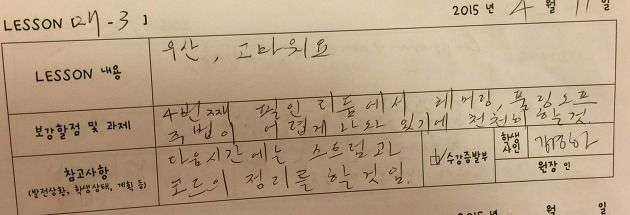 LESSON [27-3] 2015 년 4 월 11 일
LESSON 내용 우산, 고마워요
4번째 필인 리듬에서 해머링, 풀링오프
보강할점 및 과제 주법이 어렵게 나와 있기에 천천히 할것
참고사항 다음시간에는 스트럼과 수강증발부 학생 사인
(발전상황, 학생상태, 계획 등) 코드의 정리를 할것임. 원장 인
2015 년 월 일